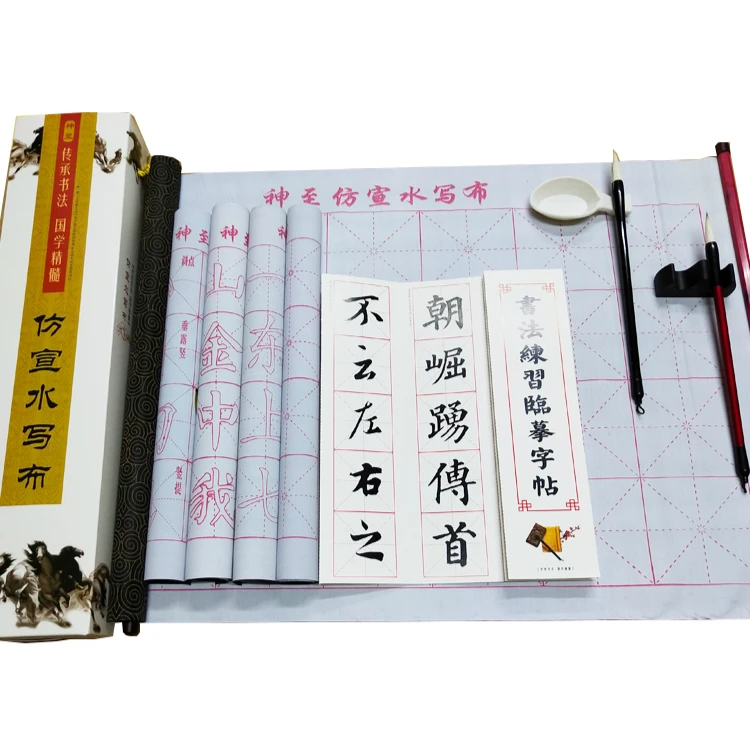 神至
传承书法 国学精髓
仿宣水写布
神至仿宣水写布
神至
神
垂露竖
竖提
山
金
中
我
东
上
七
不
云
左
右
之
朝
崛
踴
傳
首
書法練習臨摹字帖